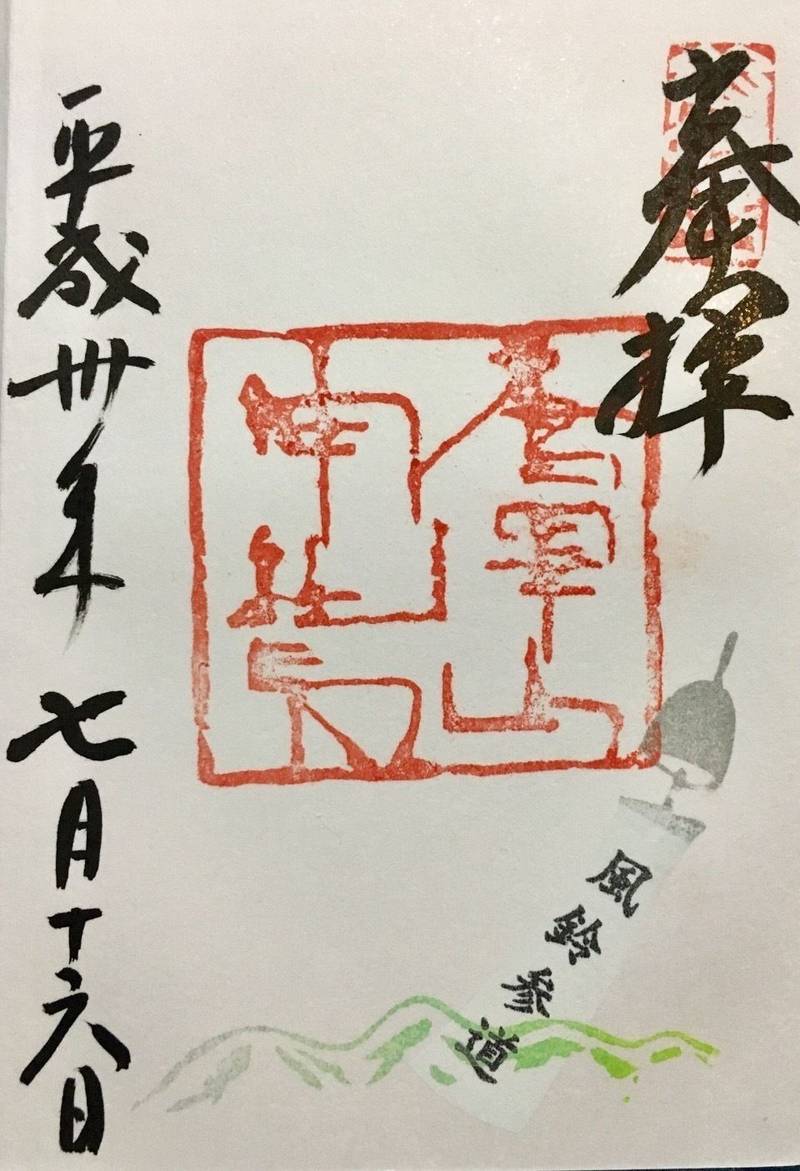 奉拝
平成卅年 七月十六日
風鈴参道